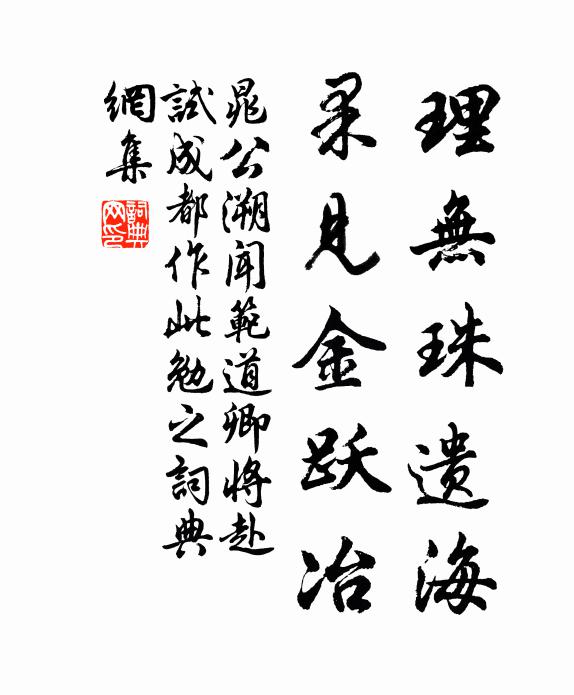 理無珠遗海
果見金跃冶
晁公溯闻範道卿將赴
試成都作此勉之詞典
網集
詞典网印